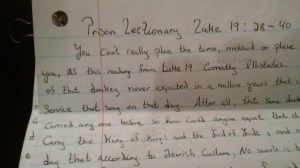 Prison Lectionary Luke 19:28-40
You Can't really plan the time, method or place
you, As this reading from Luke 19 Correctly illustrates
of that donkey never expected in a million years that
Service that way on that day. After all, that same donkey
Carried any one before so how Could anyone expect that
Carry the King of Kings and the Lord of Lords and
day that according to Jewish Custom, No work is